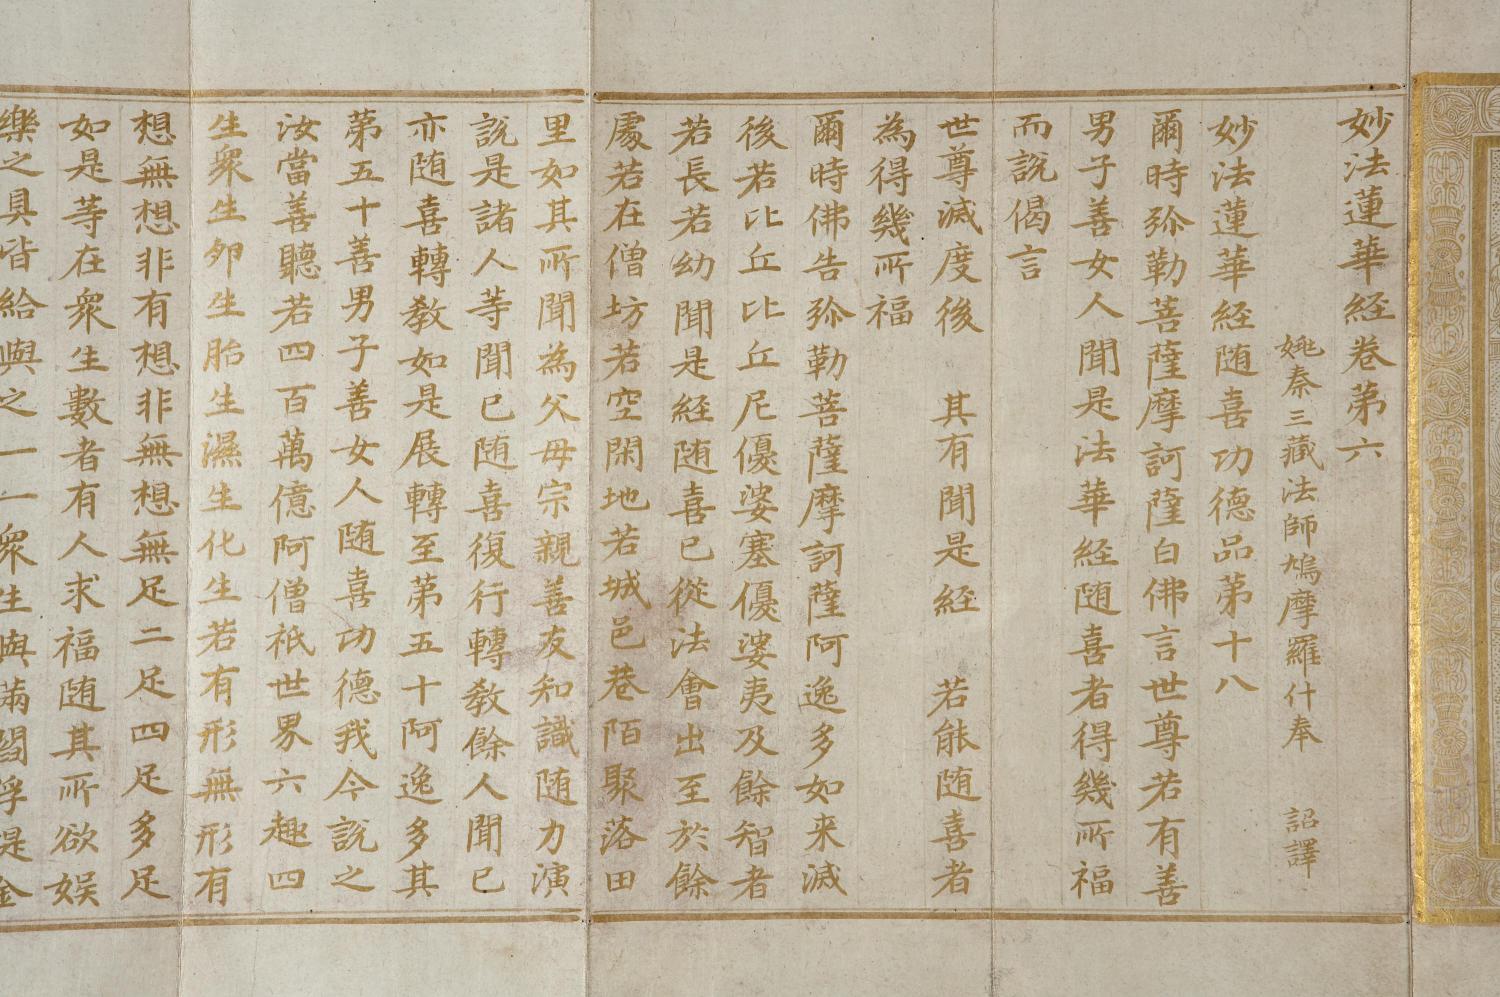 妙法蓮華経巻第六
姚秦三藏法師鳩摩羅什奉 詔譯
妙法蓮華経随喜功德品第十八
爾時弥勒菩薩摩訶薩白佛言世尊若有善
男子善女人聞是法華経随喜者得幾所福
而說偈言
世尊滅度後 其有聞是経 若能随喜者
為得幾所福
爾時佛告弥勒菩薩摩訶薩阿逸多如来滅
後若比丘比丘尼優婆塞優婆夷及餘智者
若長若幼聞是経随喜已從法會出至於餘
處若在僧坊若空閑地若城邑巷陌聚落田
里如其所聞為父母宗親善友知識随力演
說是諸人等聞已随喜復行轉教餘人聞已
亦随喜轉教如是展轉至第五十阿逸多其
第五十善男子善女人随喜功德我今說之
汝當善聽若四百萬億阿僧祇世界六趣四
生衆生卵生胎生濕生化生若有形無形有
想無想非有想非無想無足二足四足多足
如是等在衆生數者有人求福随其所欲娱
樂之具皆給與之一一衆生與滿閻浮提金